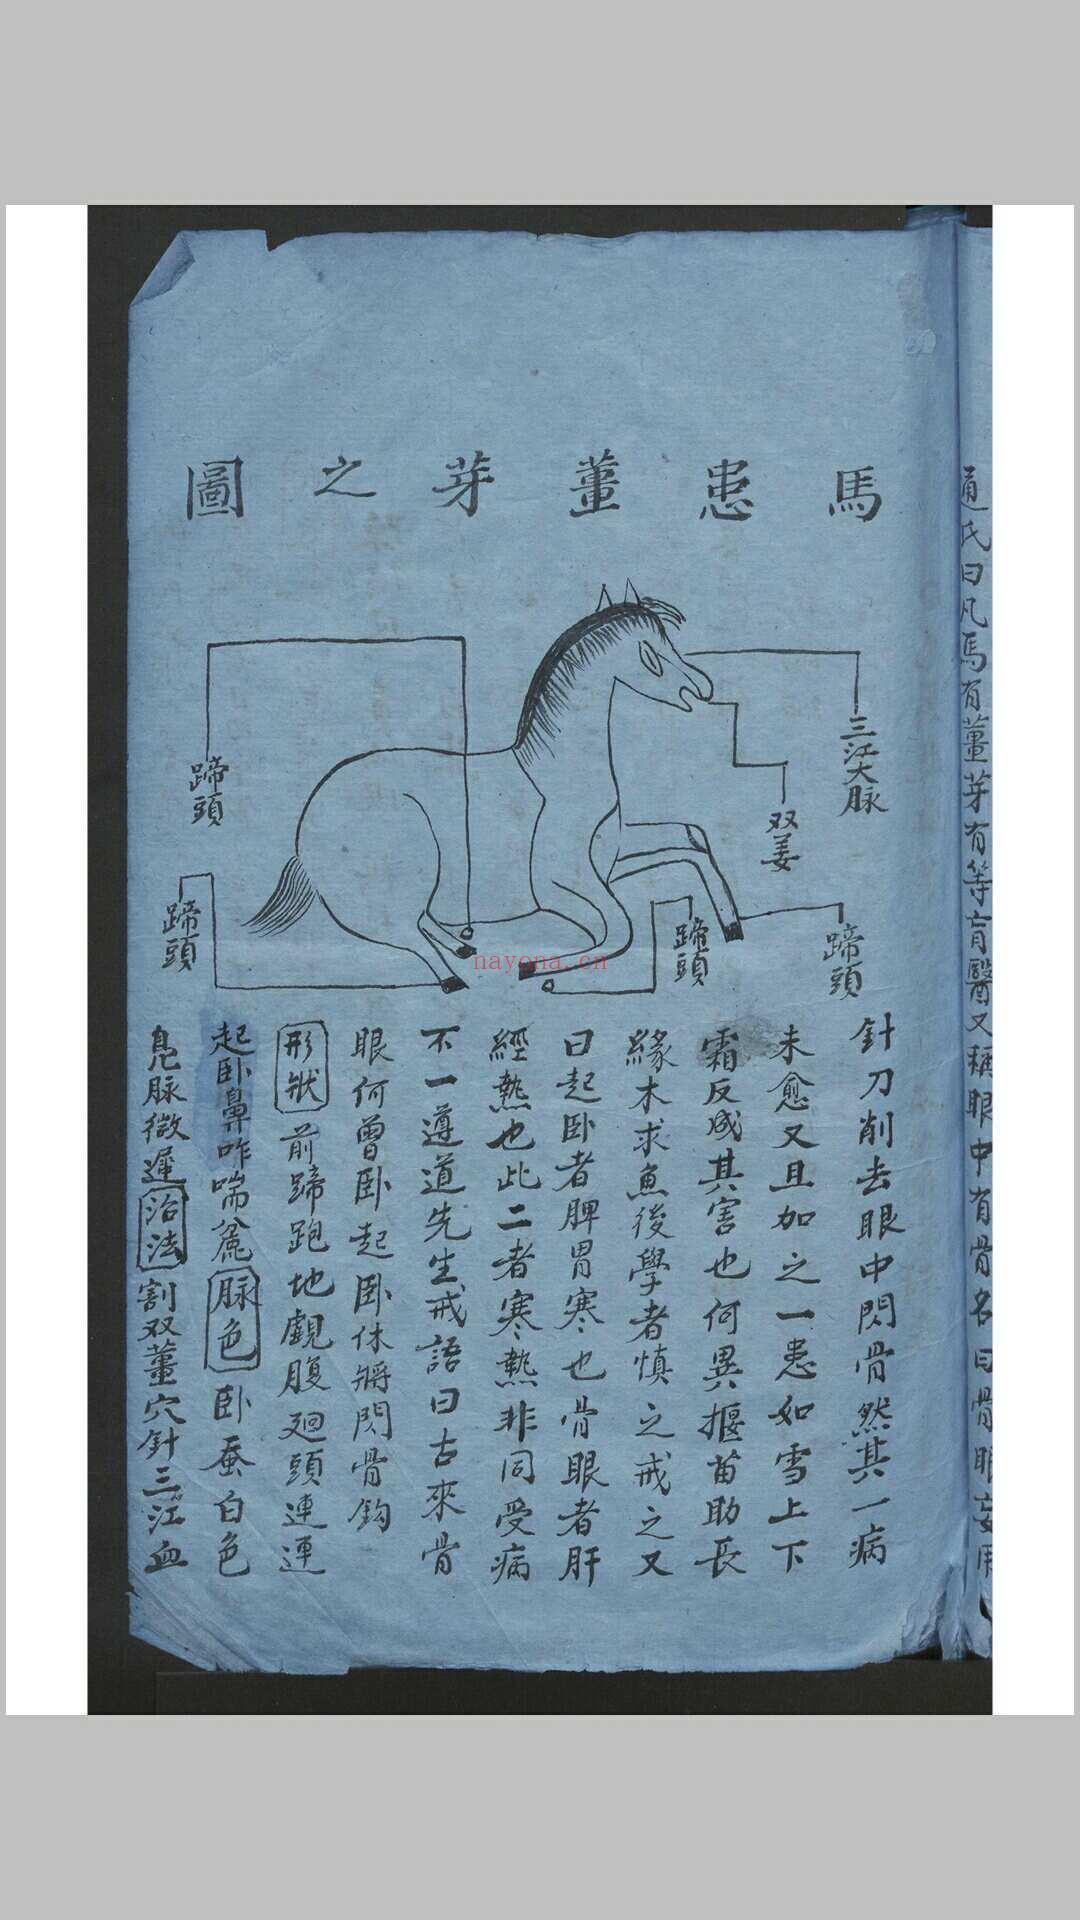 馬患薑芽之圖
三江大脉
双姜
蹄頭
蹄頭
蹄頭
蹄頭
nayona.cn
通氏曰凡馬有薑芽有等盲醫又稱眼中有骨名曰骨眼妄用
針刀削去眼中閃骨然其一病
未愈又且加之一患如雪上下
霜反成其害也何異揠苗助長
緣木求魚後學者慎之戒之又
曰起卧者脾胃寒也骨眼者肝
經熱也此二者寒熱非同受病
不一遵道先生戒語曰古來骨
眼何曾卧起卧休將閃骨鈎
形状前蹄跑地觑腹廻頭連連
起卧鼻咋喘麄脉色卧蚕白色
鳬脉微遲治法割双薑穴針三江血